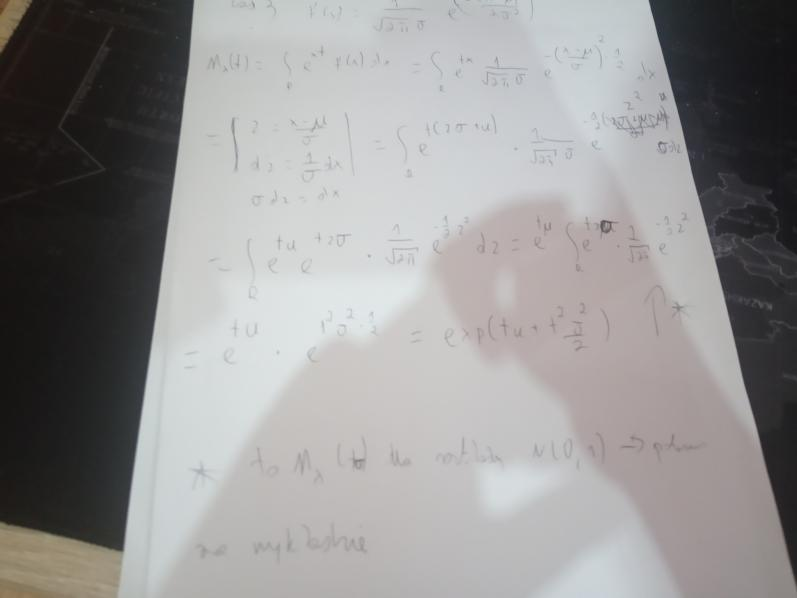 f(x) = 1/√2π σ e
M_x(t) = ∫_R e^xt f(x) dx = ∫_R e^tx 1/√2π σ e^-(x-μ/σ)^2 1/2 dx
= | z = x-μ/σ dz = 1/σ dx σ dz = dx | = ∫_R e^t(zσ+μ) · 1/√2π σ e^-1/2 z^2 σdz
= ∫_R e^tμ e^tzσ · 1/√2π e^-1/2 z^2 dz = e^tμ ∫_R e^tzσ · 1/√2π e^-1/2 z^2
= e^tμ · e^t^2σ^2·1/2 = exp(tμ + t^2 σ^2/2) ↑*
* to M_x (tσ) dla N(0,1) →
na wykładzie